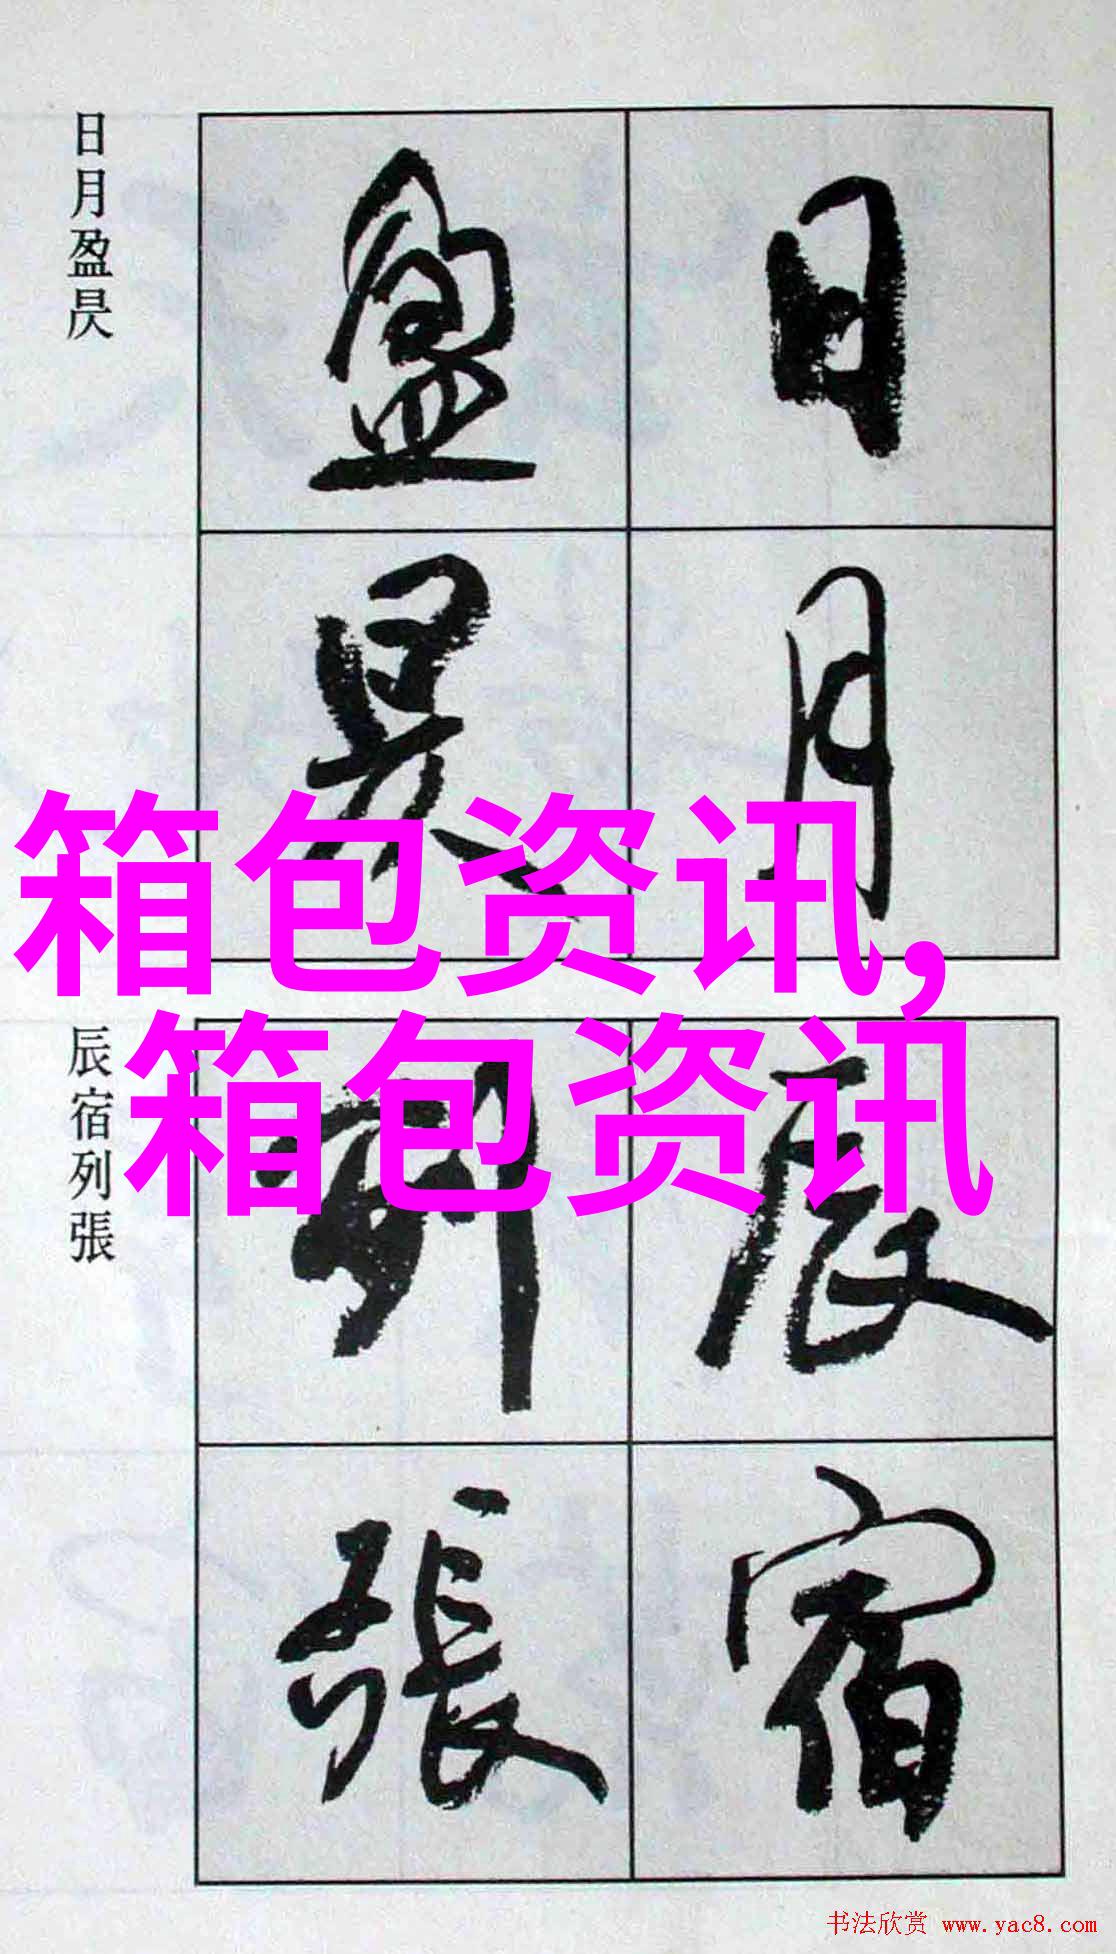 日月盈昃
日月
盈昃
箱包资讯,
箱包资讯
辰宿列張
辰宿
列張
书法欣赏 www.yac8.com